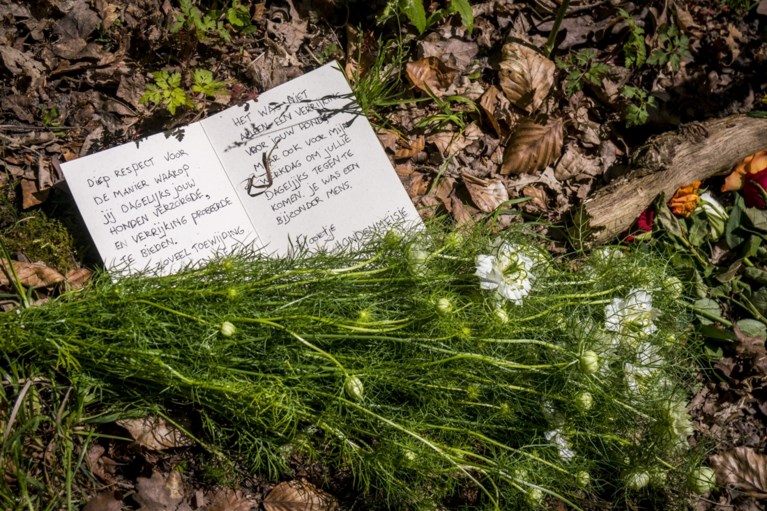 DIEP RESPECT VOOR
DE MANIER WAAROP
JIJ DAGELIJKS JOUW
HONDEN VERZORGDE,
EN VERRIJKING PROBEERDE
TE BIEDEN.
ZOVEEL TOEWIJDING
HET WAS NIET
ALLEEN EEN VERRIJKING
VOOR JOUW HONDEN
MAAR OOK VOOR MIJN
WERKDAG OM JULLIE
DAGELIJKS TEGEN TE
KOMEN. JE WAS EEN
BIJZONDER MENS.